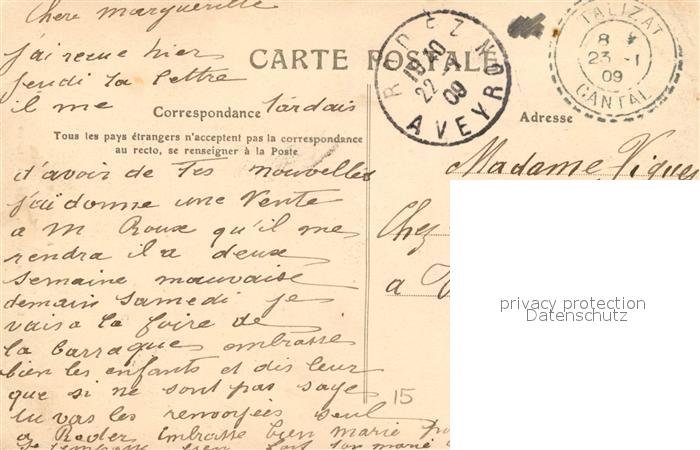 Chere marguerite
j'ai recue hier
jeudi ta lettre
il me tardais
CARTE POSTALE
Correspondance
Tous les pays étrangers n'acceptent pas la correspondance
au recto, se renseigner à la Poste
d'avoir de tes nouvelles
j'ai donne une vente
a M Roux qu'il me
rendra il a deux
semaine mauvaise
demain samedi je
vais a la foire de
la barraques embrasse
bien les enfants et dis leur
que si ne sont pas sage
tu vas les renvoyées seul
a Rodez Embrasse bien marie
RODEZ
AVEYRON
22 - 1
09
TALIZAT
8
23 - 1
09
CANTAL
Adresse
Madame Vigues
Chez
a
15
privacy protection
Datenschutz